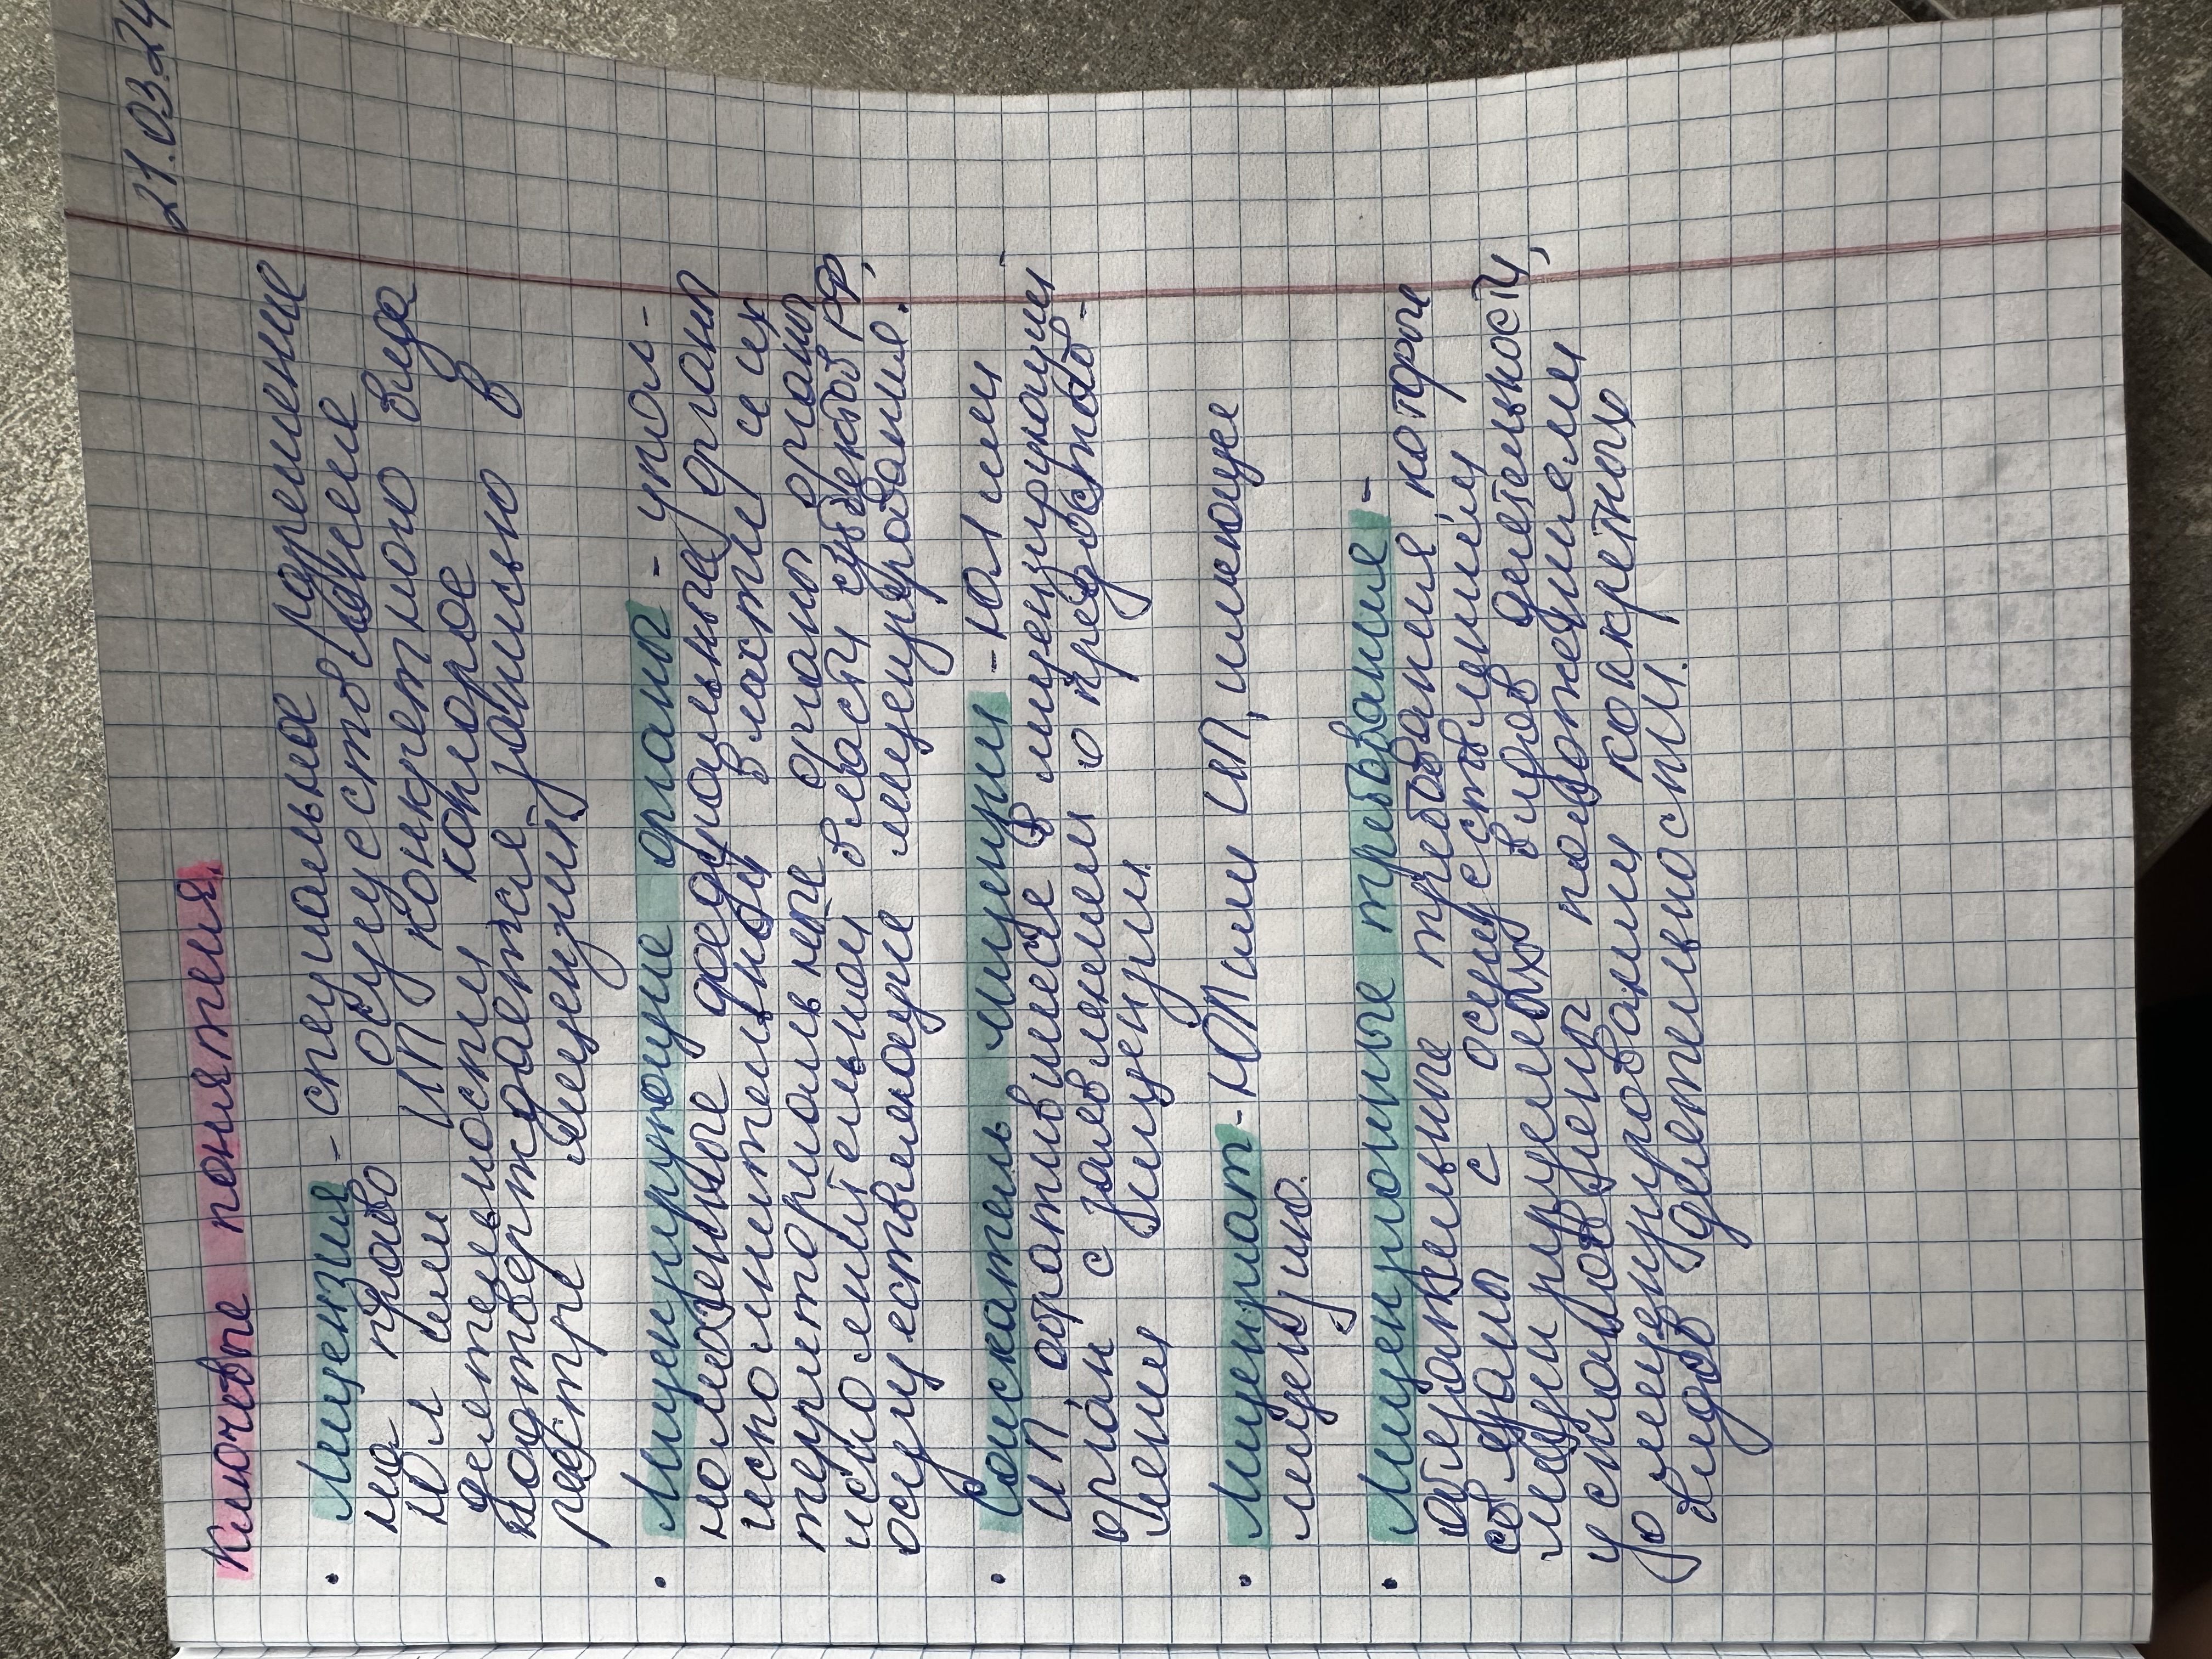 21.03.24
Ключевые понятия.
• Лицензия - специальное разрешение
на право осуществление
ЮЛ или ИП конкретного вида
деятельности, которое
подтверждается записью в
реестре лицензий
• Лицензирующие органы - упол-
номоченные федеральные органы
исполнительной власти и их
территориальные органы органы
исполнительной власти субъектов РФ,
осуществляющие лицензирование.
• Соискатель лицензии - ЮЛ или
ИП обратившиеся в лицензирующий
орган с заявлением о предостав-
лении лицензии.
• Лицензиат - ЮЛ или ИП, имеющее
лицензию.
• Лицензионные требование -
обязательные требования, которые
связаны с осуществлением
лицензируемых видов деятельности,
установлены положениями
о лицензировании конкретных
видов деятельности.